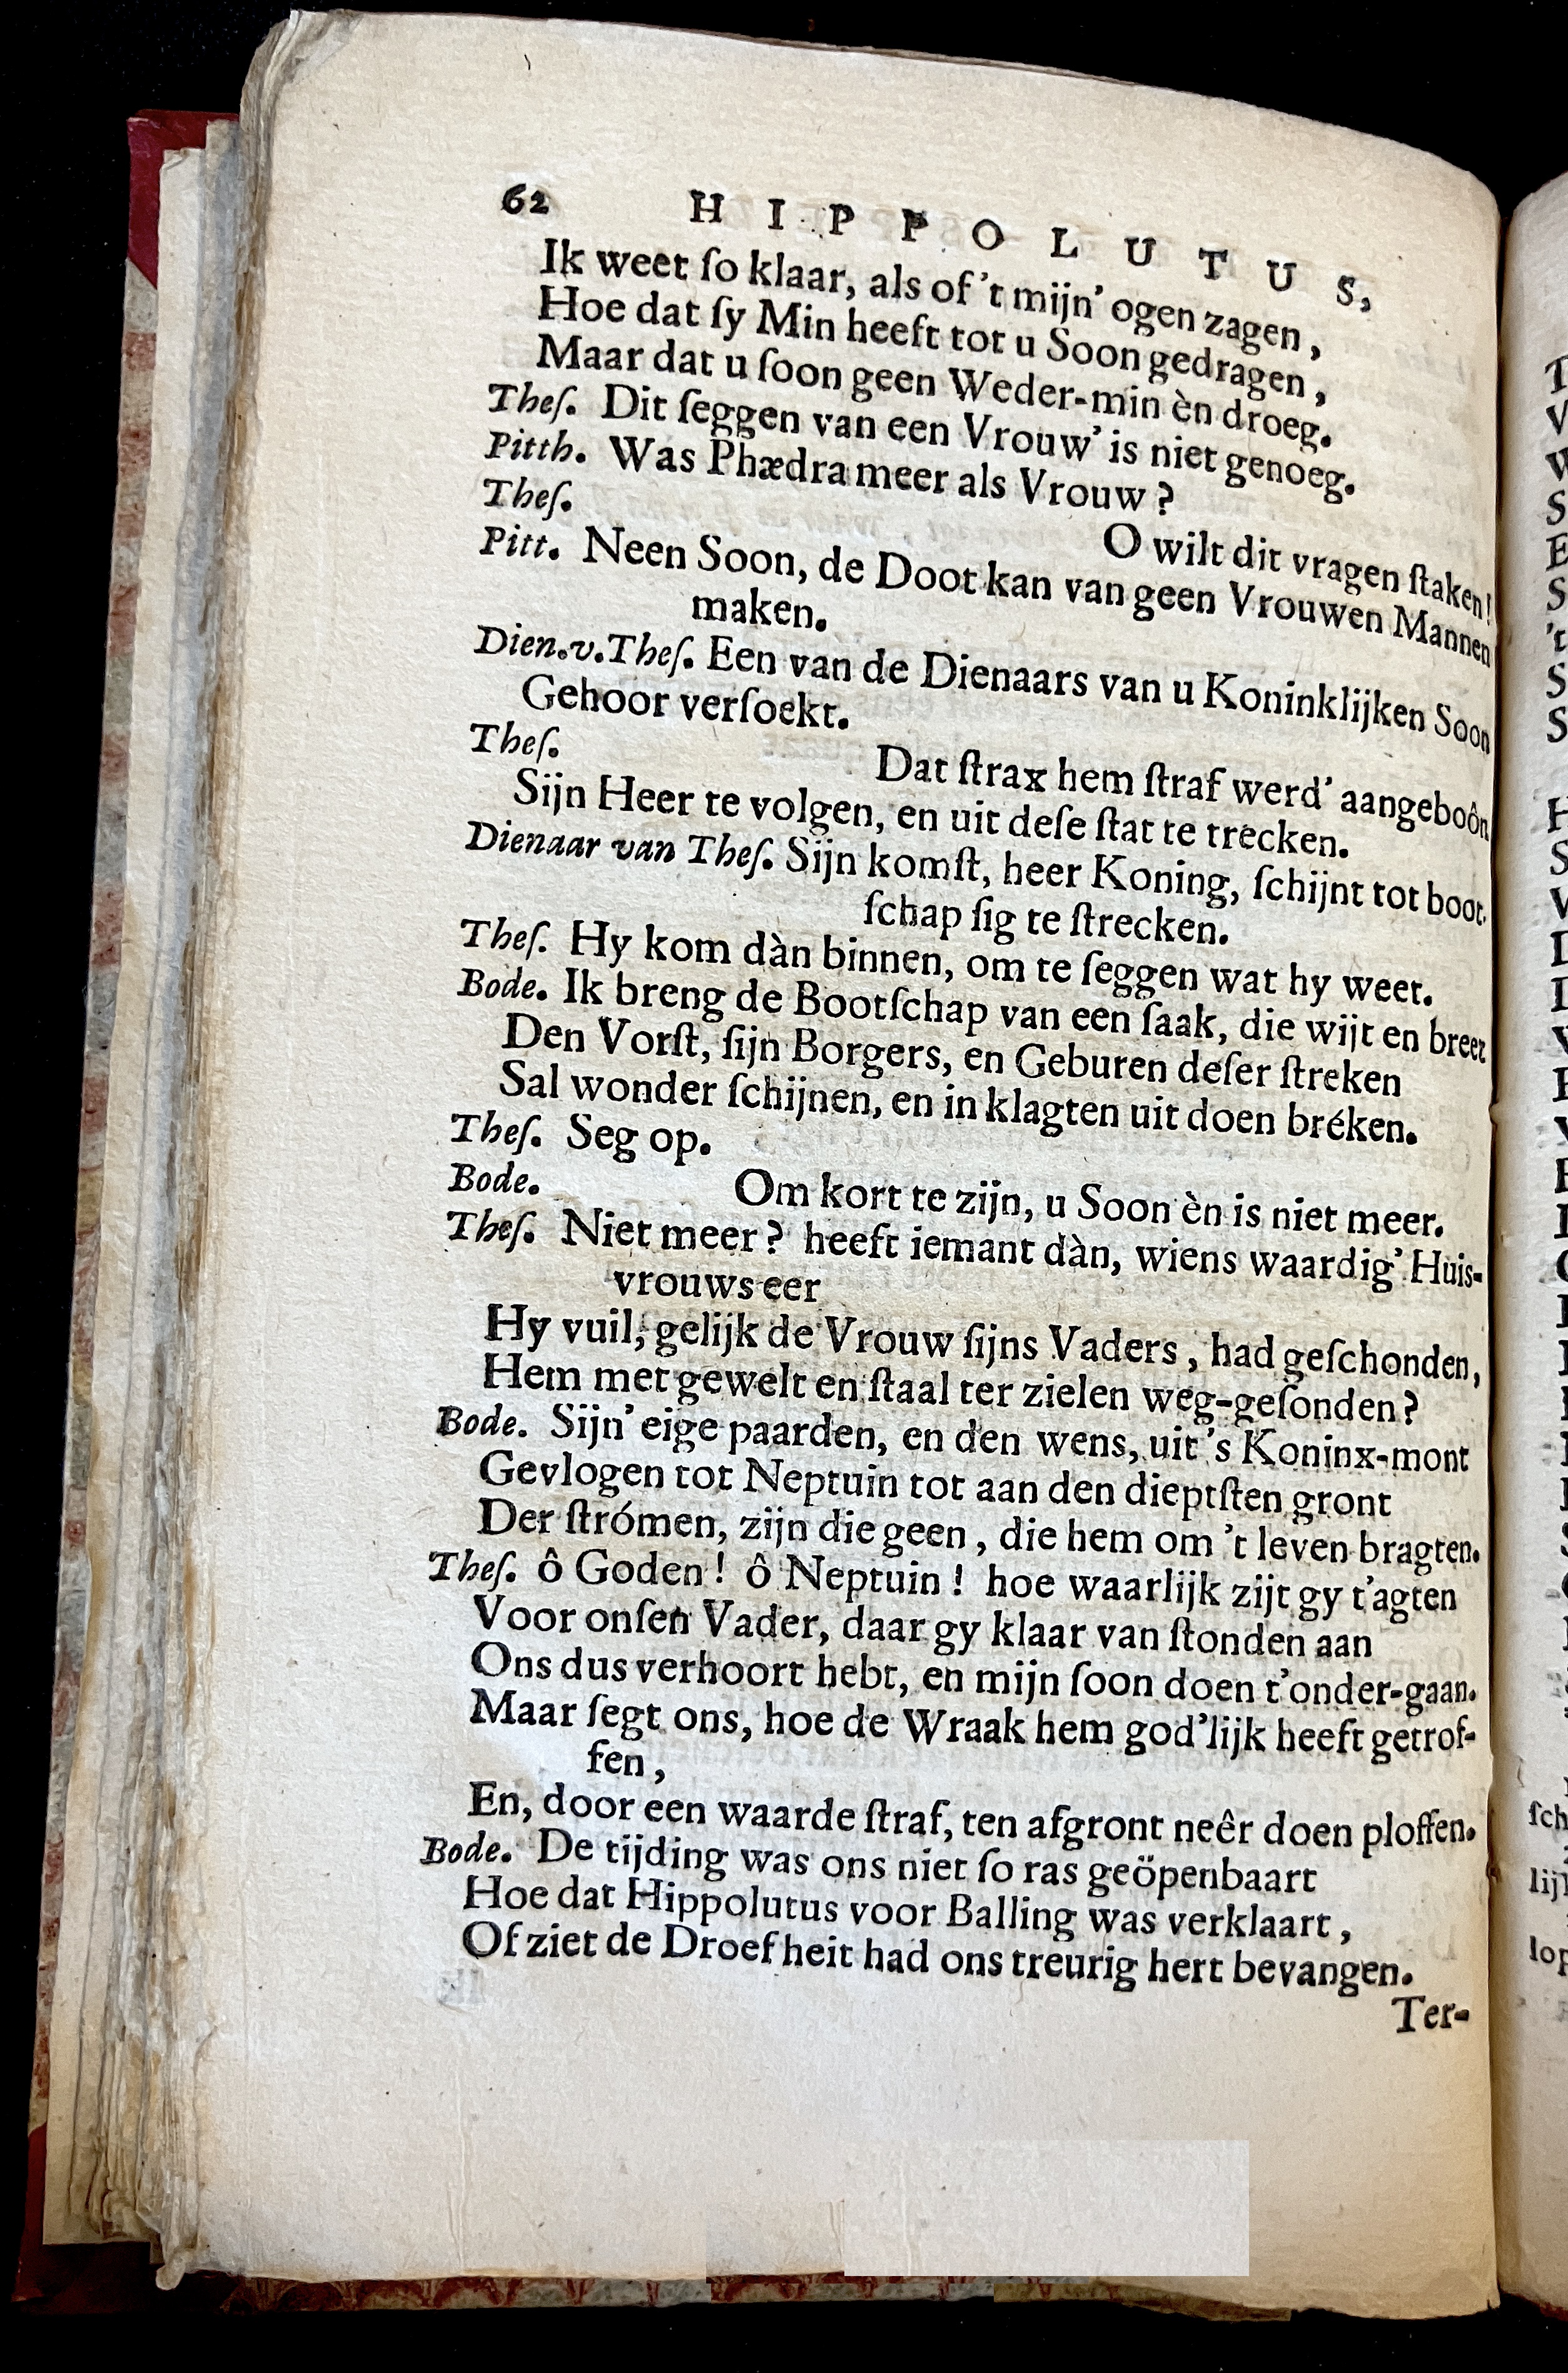 62 HIPPOLUTUS,
Ik weet ſo klaar, als of 't mijn' ogen zagen,
Hoe dat ſy Min heeft tot u Soon gedragen,
Maar dat u ſoon geen Weder-min èn droeg.
Theſ. Dit ſeggen van een Vrouw' is niet genoeg.
Pitth. Was Phædra meer als Vrouw?
Theſ. O wilt dit vragen ſtaken!
Pitt. Neen Soon, de Doot kan van geen Vrouwen Mannen
maken.
Dien.v.Theſ. Een van de Dienaars van u Koninklijken Soon
Gehoor verſoekt.
Theſ. Dat ſtrax hem ſtraf werd' aangeboôn
Sijn Heer te volgen, en uit deſe ſtat te trecken.
Dienaar van Theſ. Sijn komſt, heer Koning, ſchijnt tot boot-
ſchap ſig te ſtrecken.
Theſ. Hy kom dàn binnen, om te ſeggen wat hy weet.
Bode. Ik breng de Bootſchap van een ſaak, die wijt en breet
Den Vorſt, ſijn Borgers, en Geburen deſer ſtreken
Sal wonder ſchijnen, en in klagten uit doen bréken.
Theſ. Seg op.
Bode. Om kort te zijn, u Soon èn is niet meer.
Theſ. Niet meer? heeft iemant dàn, wiens waardig' Huis-
vrouws eer
Hy vuil, gelijk de Vrouw ſijns Vaders, had geſchonden,
Hem met gewelt en ſtaal ter zielen weg-geſonden?
Bode. Sijn' eige paarden, en den wens, uit 's Koninx-mont
Gevlogen tot Neptuin tot aan den dieptſten gront
Der ſtrómen, zijn die geen, die hem om 't leven bragten.
Theſ. ô Goden! ô Neptuin! hoe waarlijk zijt gy t'agten
Voor onſen Vader, daar gy klaar van ſtonden aan
Ons dus verhoort hebt, en mijn ſoon doen t'onder-gaan.
Maar ſegt ons, hoe de Wraak hem god'lijk heeft getrof-
fen,
En, door een waarde ſtraf, ten afgront neêr doen ploffen.
Bode. De tijding was ons niet ſo ras geöpenbaart
Hoe dat Hippolutus voor Balling was verklaart,
Of ziet de Droefheit had ons treurig hert bevangen.
Ter-